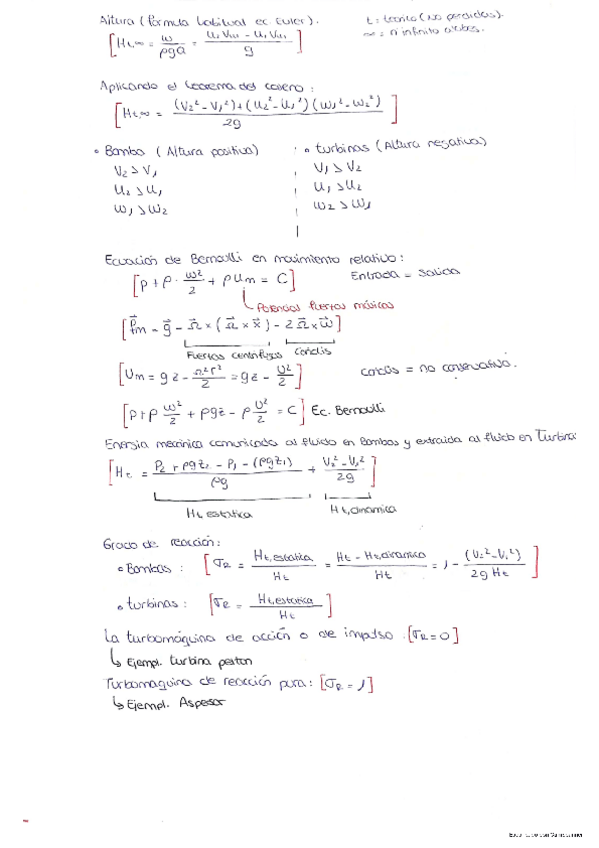 Altura (fórmula habitual ec. Euler).
t = teórico (No perdidas).
∞ = nº infinito álabes.
[Ht,∞ = w / ρgQ = (u₂Vu₂ - u₁Vu₁) / g]
Aplicando el teorema del coseno:
[Ht,∞ = ((V₂² - V₁²) + (U₂² - U₁²) (W₁² - W₂²)) / 2g]
• Bomba (Altura positiva)
V₂ > V₁
U₂ > U₁
W₁ > W₂
• turbinas (Altura negativa)
V₁ > V₂
U₁ > U₂
W₂ > W₁
Ecuación de Bernoulli en movimiento relativo:
[p + ρ · w²/2 + ρUm = C]
Entrada = Salida
↳ Potencial fuerzas másicas
[f⃗m = g⃗ - Ω⃗ × (Ω⃗ × x⃗) - 2Ω⃗ × w⃗]
Fuerzas centrífugas Coriolis
[Um = gz - Ω²r²/2 = gz - U²/2]
coriolis = no conservativo.
[p + ρ w²/2 + ρgz - ρ U²/2 = C] Ec. Bernoulli
Energía mecánica comunicada al fluido en Bombas y extraida al fluido en Turbina:
[Ht = (P₂ + ρgz₂ - P₁ - (ρgz₁)) / ρg + (V₂² - V₁²) / 2g]
Ht, estática Ht, dinámica
Grado de reacción:
• Bombas: [σR = Ht,estática / Ht = (Ht - Ht,dinámica) / Ht = 1 - (V₂² - V₁²) / 2gHt]
• turbinas: [σR = Ht,estática / Ht]
La turbomáquina de acción o de impulso. [σR = 0]
↳ Ejempl. turbina pelton
Turbomaquina de reacción pura: [σR = 1]
↳ Ejempl. Aspersor